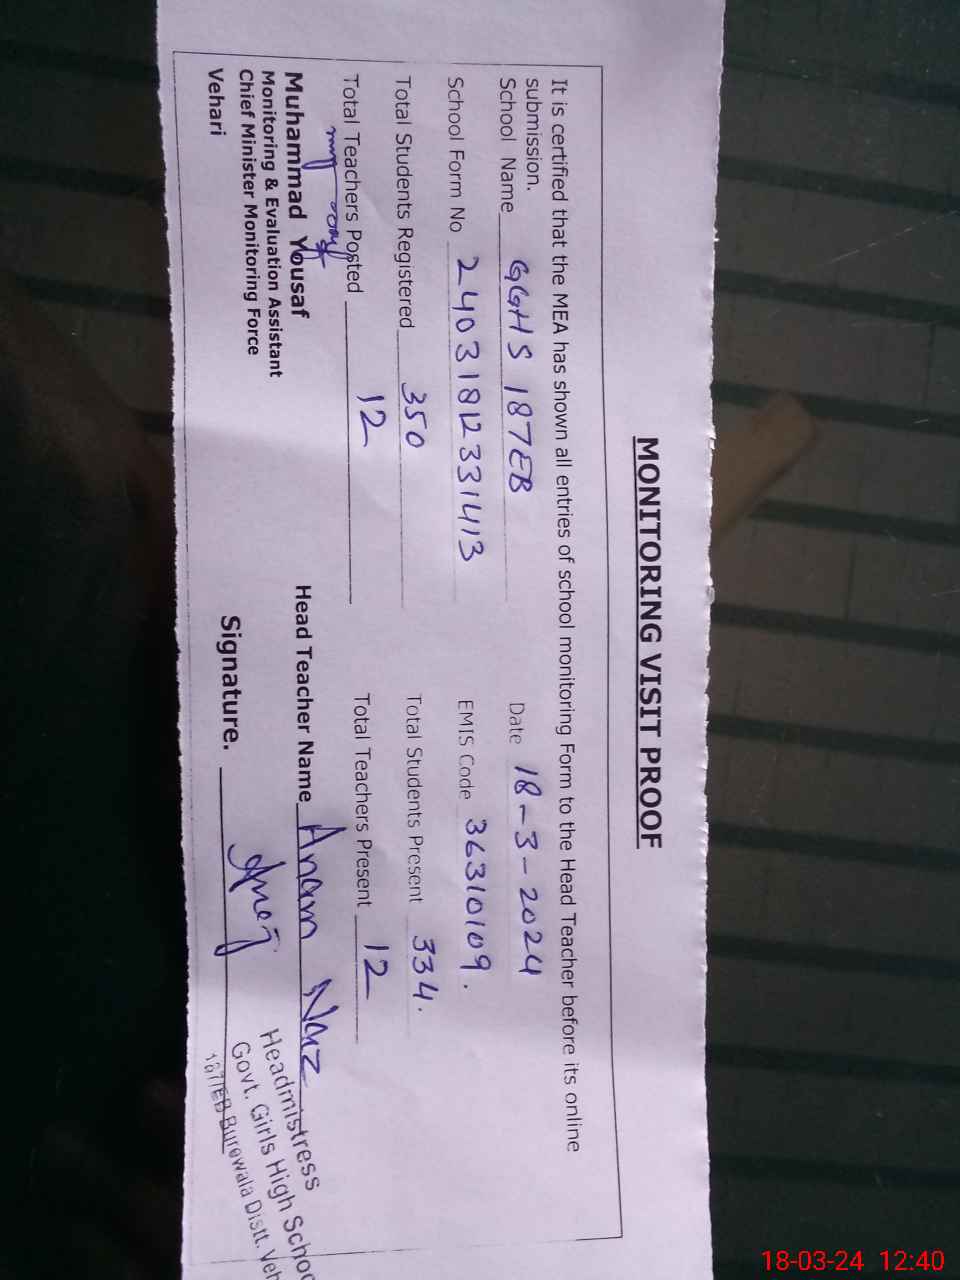 MONITORING VISIT PROOF
It is certified that the MEA has shown all entries of school monitoring Form to the Head Teacher before its online
submission.
School Name GGHS 187EB Date 18-3-2024
School Form No 24031812331413 EMIS Code 36310109.
Total Students Registered 350 Total Students Present 334.
Total Teachers Posted 12 Total Teachers Present 12
Muhammad Yousaf
Monitoring & Evaluation Assistant
Chief Minister Monitoring Force
Vehari
Head Teacher Name Anam Naz
Signature.
Headmistress
Govt. Girls High Schoo
187/EB Burewala Distt. Veh
18-03-24 12:40